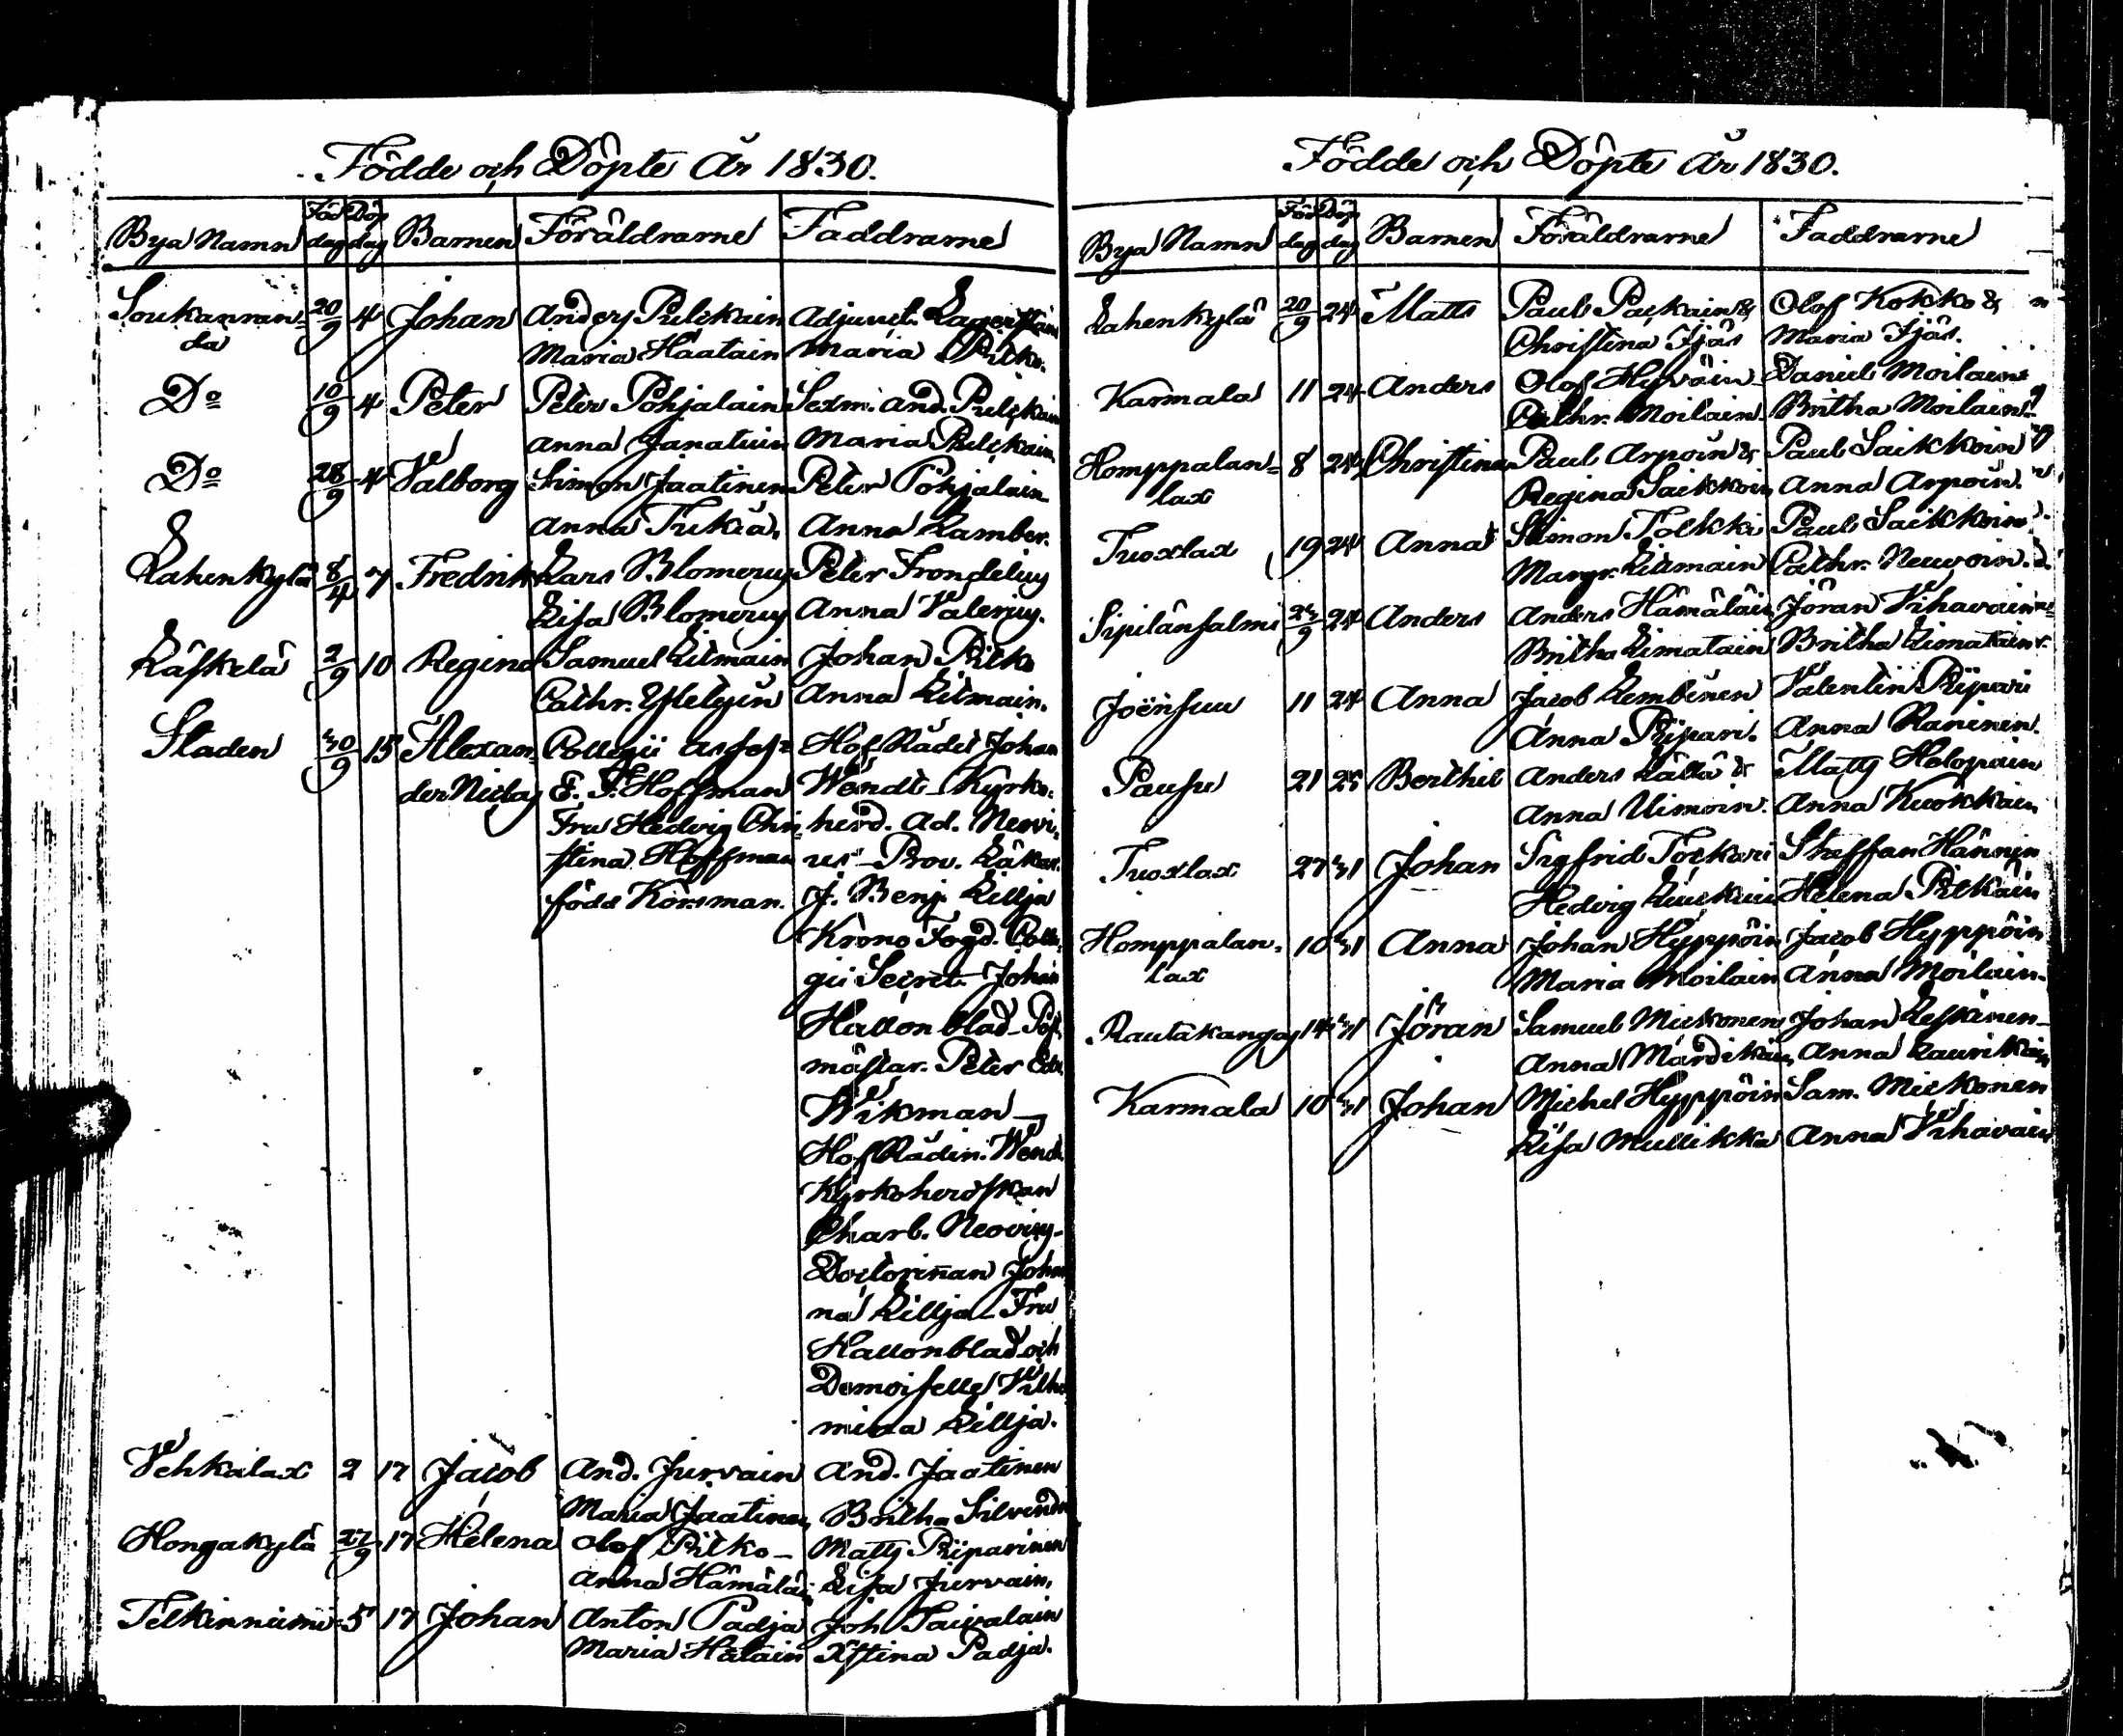 Födde och Döpte År 1830.
Bya Namn Föd dag Döp dag Barnen Föräldrarne Faddrarne
Soukanran- 20/9 4 Johan Anders Pulckain Adjunct. Lagerstam
da Maria Haatain Maria Pitko.
Do 10/9 4 Peter Peter Pohjalain Sexm. And. Pulckain
Anna Janatuin Maria Pulckain
Do 28/9 4 Valborg Simon Jaatinen Peter Pohjalain
Anna Tukia. Anna Lamber.
Lahenkylä 8/4 7 Fredrik Lars Blomerus Peter Frondelius
Lisa Blomerus Anna Valerius.
Läskelä 2/9 10 Regina Samuel Litmain Johan Pitko
Cathr. Anna Litmain.
Staden 30/9 15 Alexan- Collegii Hof Rådet Johan
der Niclas E. F. Hoffman Wendt - Kyrko-
Fru Hedvig Chri- herd. Ad. Neovi-
stina Hoffman us - Prov. Läkar.
född Korsman. J. Benj. Lillja
Krono Fogd. Colle-
gii Secret. Johan
Hallonblad - Post-
mästar. Peter Edv.
Wikman -
Hof Rådin. Wendt
Kyrkoherdskan
Charl. Neovius -
Doctorinnan Johan
na Lillja - Fru
Hallonblad och
Demoiselle Vilhel
mina Lillja.
Vehkalax 2 17 Jacob And. Jurvain And. Jaatinen
Maria Jaatinen Britha Silvendo
Hongakylä 27/9 17 Helena Olof Pitko - Matts Riiparinen
Anna Hämäläi Lisa Jurvain.
Telkinniemi 5 17 Johan Anton Padja Joh Taivalain
Maria Hatain Xstina Padja.
Födde och Döpte År 1830.
Bya Namn Föd dag Döp dag Barnen Föräldrarne Faddrarne
Lahenkylä 20/9 24 Matts Paul Packain & Olof Kokko &
Christina Ijäs Maria Ijäs.
Karmala 11 24 Anders Olof Hyvöin Daniel Moilain
Cathr. Moilain. Britha Moilain
Homppalan- 8 24 Christina Paul Arpoin & Paul Saikkoin
lax Regina Saikkoin Anna Arpoin.
Tuoxlax 19 24 Anna Simon Tolkki Paul Saikkoin
Margr. Litmain Cathr. Neuvoin.
Sipilänsalmi 23/9 24 Anders Anders Hämäläin Jöran Vihavain
Britha Limatain Britha Limatain
Joensuu 11 24 Anna Jacob Lembinen Valentin Riipari
Anna Riipari. Anna Raninen.
Pausu 21 25 Berthil Anders Lättä & Matts Holopain
Anna Uimoin. Anna Kuokkain
Tuoxlax 27 31 Johan Sigfrid Tockari Staffan Hännin
Hedvig Helena Pitkäin
Homppalan- 10 31 Anna Johan Hyppöin Jacob Hyppöin
lax Maria Moilain Anna Moilain.
Rautakangas 14 31 Jöran Samuel Mickonen Johan Leskinen -
Anna Mardikain Anna Laurikain
Karmala 10 31 Johan Michel Hyppöin Sam. Mickonen
Lisa Mullikka Anna Vihavain